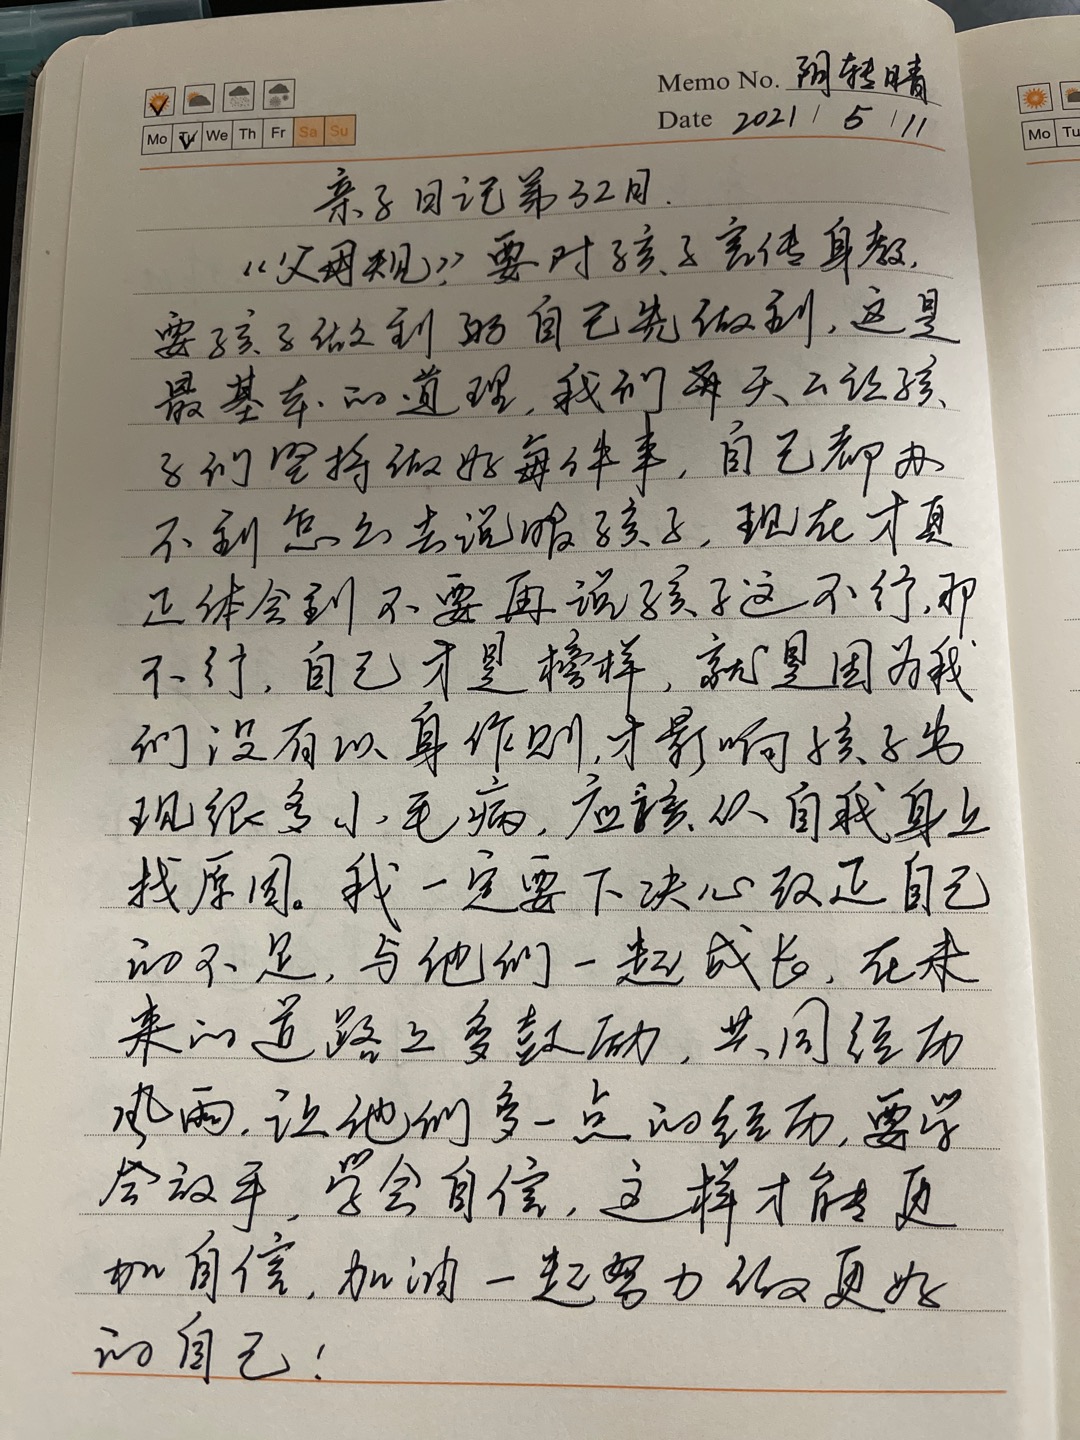 Memo No. 阴转晴
Mo Tu We Th Fr Sa Su
Date 2021 / 5 / 11
Mo Tu
亲子日记第32日.
《父母规》要对孩子言传身教,
要孩子做到的自己先做到,这是
最基本的道理,我们每天只让孩
子们坚持做好每件事,自己都办
不到怎么去说服孩子,现在才真
正体会到不要再说孩子这不行,那
不行,自己才是榜样,就是因为我
们没有以身作则,才影响孩子出
现很多小毛病,应该从自我身上
找原因。我一定要下决心改正自己
的不足,与他们一起成长,在未
来的道路上多鼓励,共同经历
风雨,让他们多一点的经历,要学
会放手,学会自信,这样才能更
加自信,加油一起努力做更好
的自己!